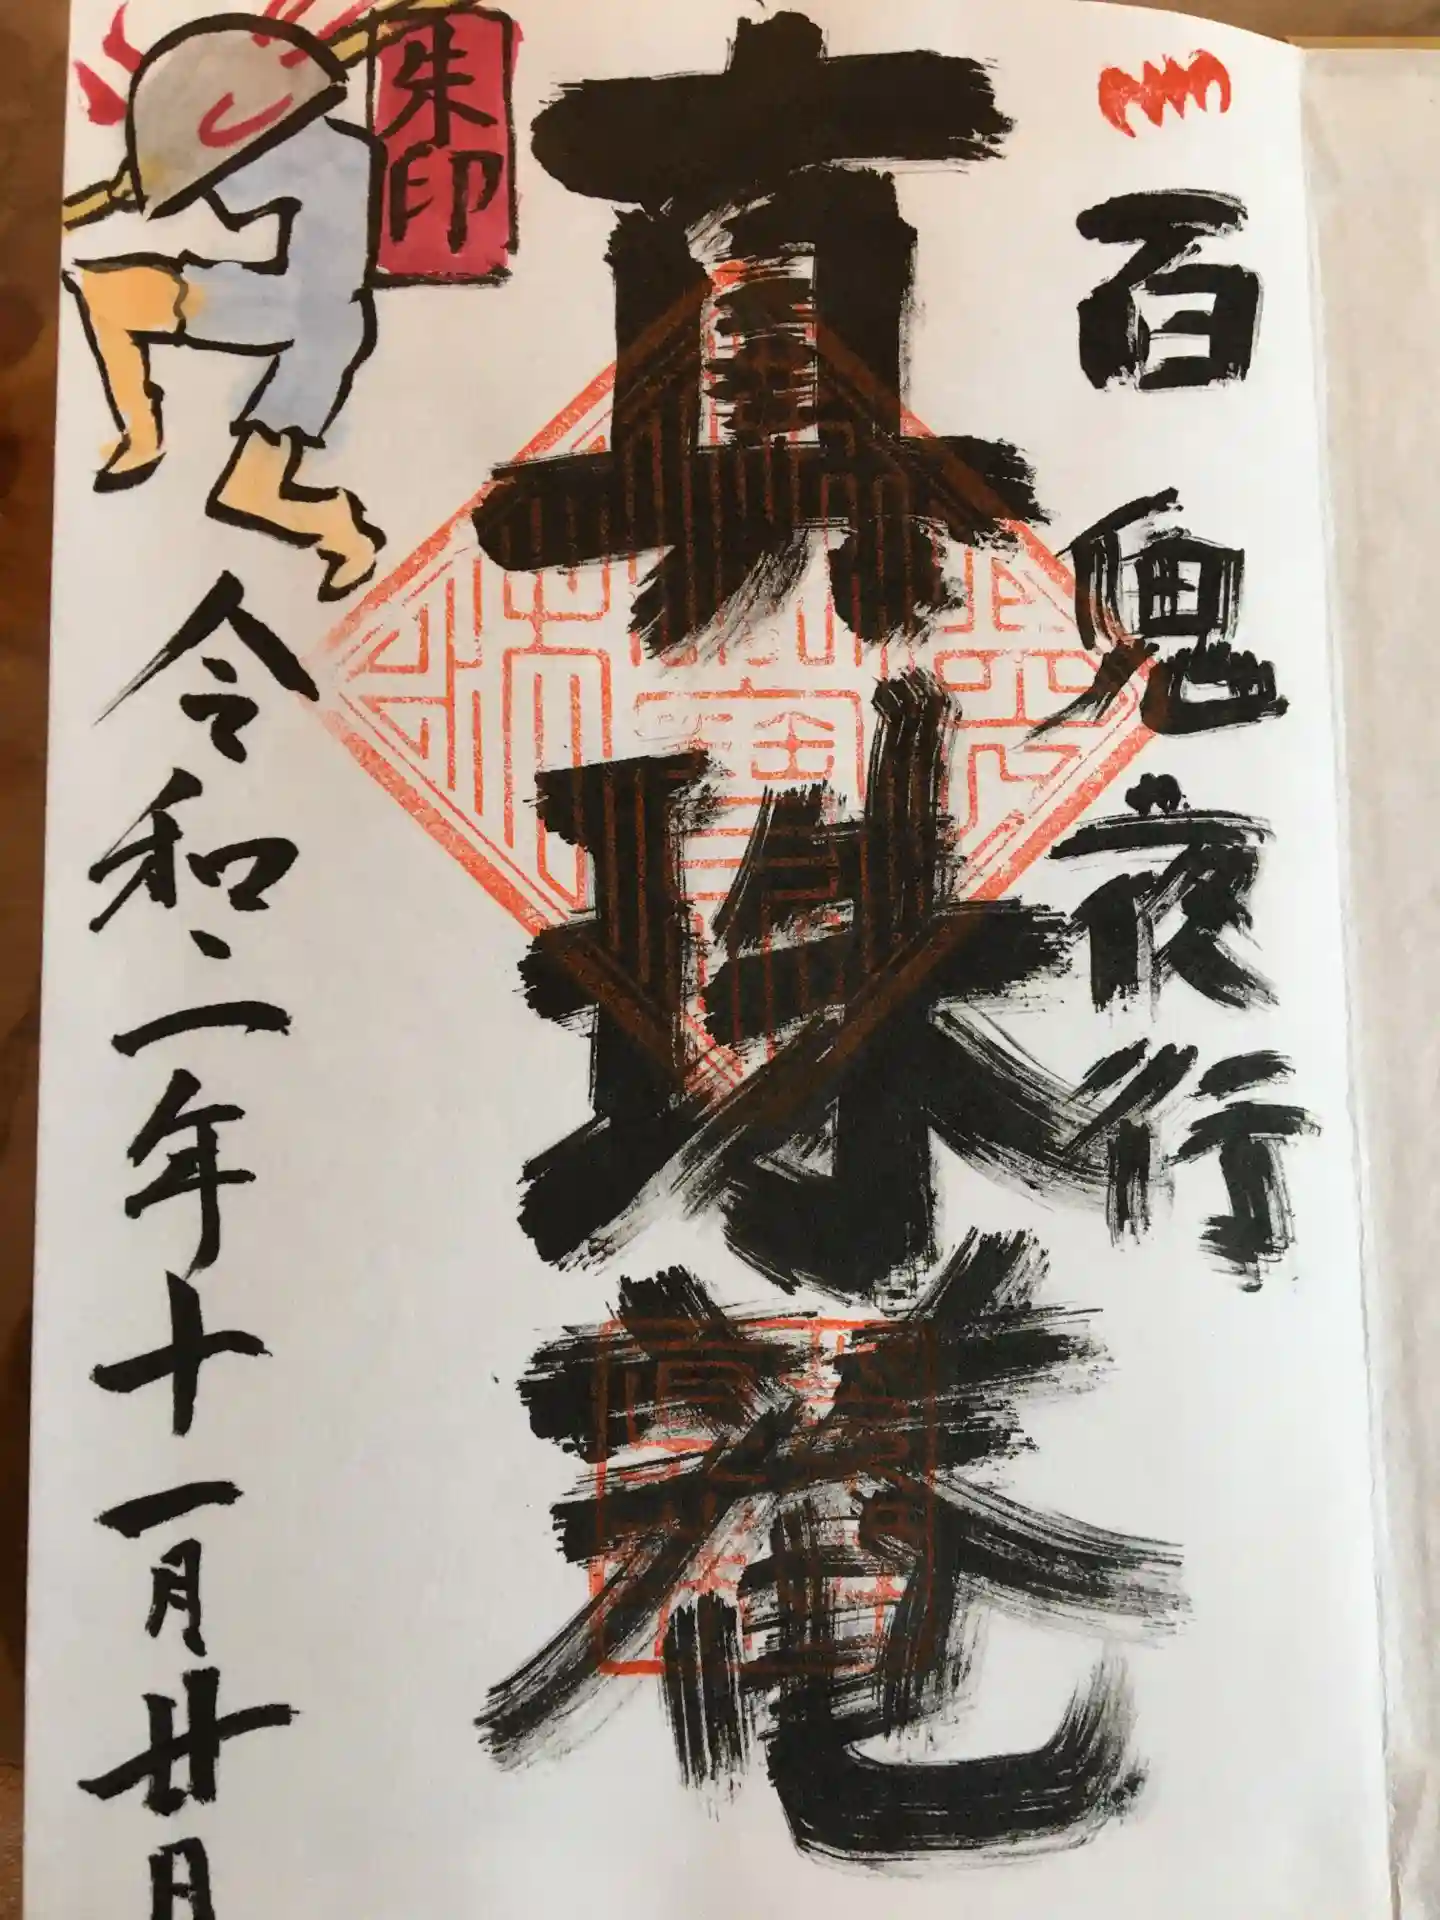 百鬼夜行
真珠庵
朱印
令和二年十一月廿日